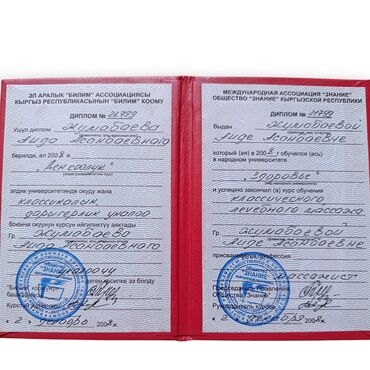 ЭЛ АРАЛЫК "БИЛИМ" АССОЦИАЦИЯСЫ
КЫРГЫЗ РЕСПУБЛИКАСЫНЫН "БИЛИМ" КООМУ
ДИПЛОМ №
Ушул диплом Жумабаева
Аида Асанбаевнага
берилди, ал 2008 ж
"Ден соолук"
элдик университетинде окуду жана
классикалык
дарыгерлик укалоо
боюнча окуунун курсун ийгиликтүү аяктады
Гр. Жумабаева
Аида Асанбаевнага
укалоочу
"ЗНАНИЕ"
2 2008 ж.
МЕЖДУНАРОДНАЯ АССОЦИАЦИЯ "ЗНАНИЕ"
ОБЩЕСТВО "ЗНАНИЕ" КЫРГЫЗСКОЙ РЕСПУБЛИКИ
ДИПЛОМ №
Выдан Жумабаевой
Аиде Асанбаевне
который (ая) в 2008 г обучался (ась)
в народном университете
"Здоровье"
и успешно закончил (а) курс обучения
классического
лечебного массажа
Гр. Жумабаевой
Аиде Асанбаевне
присвоена профессия
массажист
Председатель Правления
Общества "Знание"
Руководитель Курсов
"ЗНАНИЕ"
2 декабря 2008